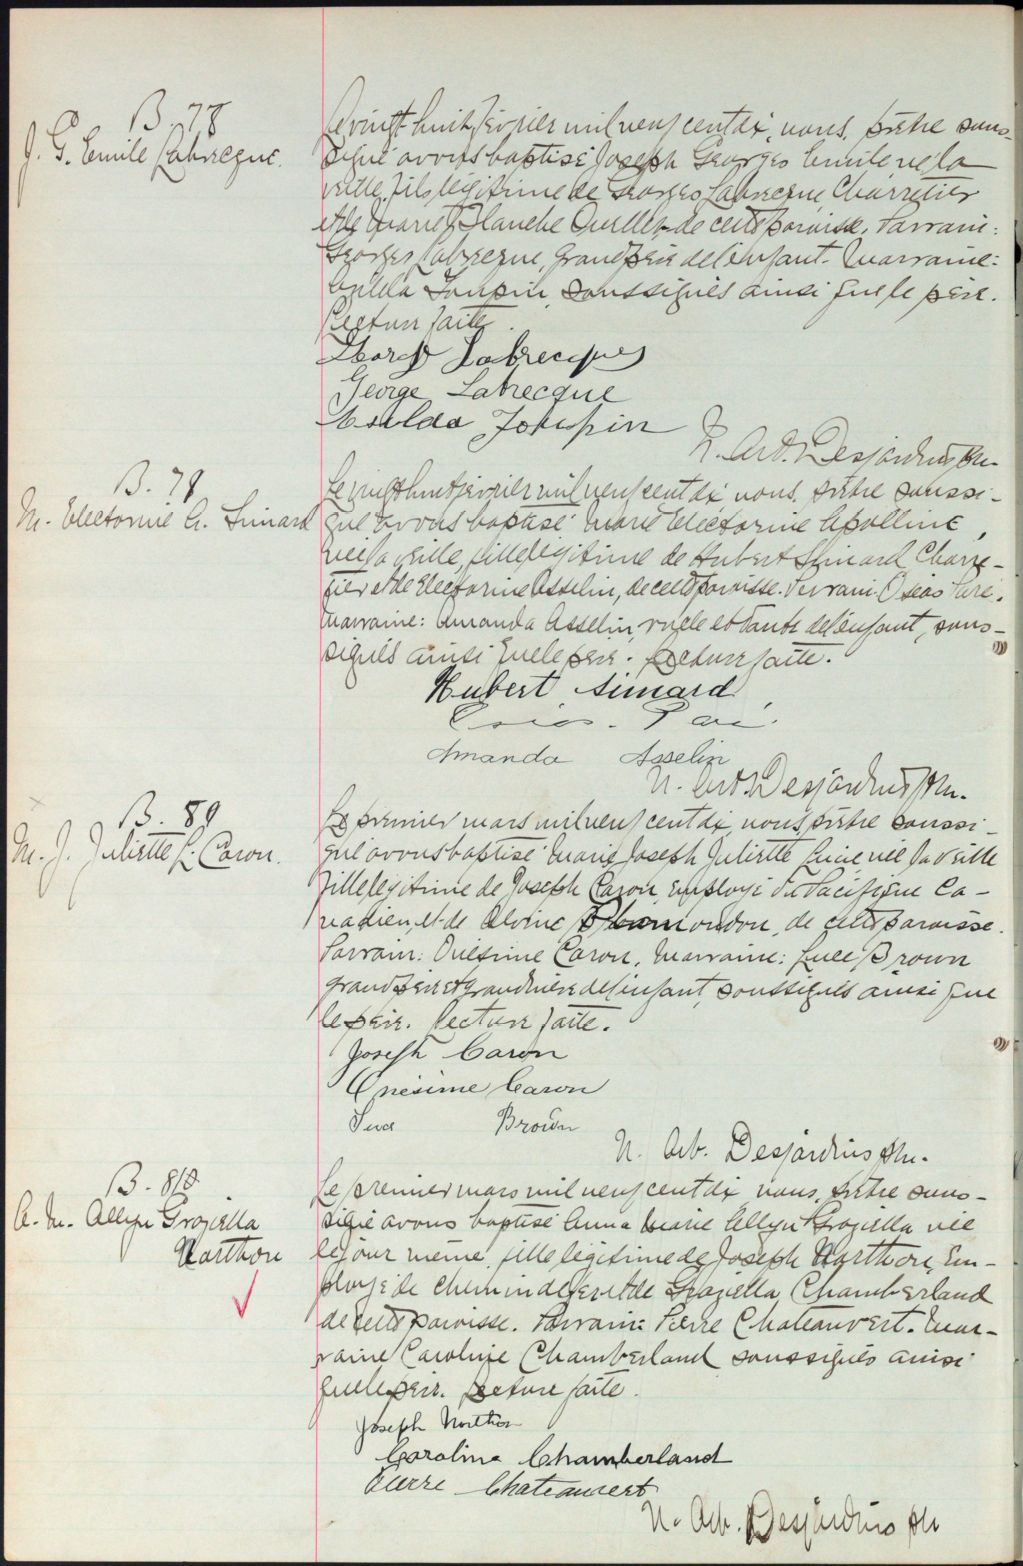 B. 78
J. G. Emile Labrecque.
Le vingt huit février mil neuf cent dix, nous, prêtre sous-
signé avons baptisé Joseph Georges Emile né la
veille, fils légitime de Georges Labrecque Charretier
et de Marie Blanche Ouellet de cette paroisse. Parrain:
Georges Labrecque, grandpère de l'enfant. Marraine:
Exilda Toupin, soussignés ainsi que le père.
Lecture faite.
Georges Labrecque
George Labrecque
Exilda Toupin
N. Art. Desjardins Ptre.
B. 79
M. Electorine A. Simard
Le vingt huit février mil neuf cent dix nous, prêtre soussi-
gné avons baptisé Marie Electorine Apolline,
née la veille, fille légitime de Hubert Simard Charre-
tier et de Electorine Asselin, de cette paroisse. Parrain: Osias Paré.
Marraine: Amanda Asselin, oncle et tante de l'enfant, sous-
signés ainsi que le père. Lecture faite.
Hubert Simard
Osias Paré
Amanda Asselin
N. Art. Desjardins Ptre.
B. 80
M. J. Juliette L. Caron.
Le premier mars mil neuf cent dix, nous, prêtre soussi-
gné avons baptisé Marie Joseph Juliette Lucie née la veille
fille légitime de Joseph Caron, employé du Pacifique Ca-
nadien, et de Alvine de cette paroisse.
Parrain: Onésime Caron. Marraine: Luce Brown
grand père et grand'mère de l'enfant, soussignés ainsi que
le père. Lecture faite.
Joseph Caron
Onésime Caron
Brown
N. Art. Desjardins Ptre.
B. 81
A. M. Allyn Graziella
Narthon
Le premier mars mil neuf cent dix, nous, prêtre sous-
signé avons baptisé Anna Marie Allyn Graziella née
le jour même, fille légitime de Joseph Narthon, Em-
ployé de chemin de fer et de Graziella Chamberland
de cette paroisse. Parrain: Pierre Chateauvert. Mar-
raine Caroline Chamberland soussignés ainsi
que le père. Lecture faite.
Joseph Northon
Caroline Chamberland
Pierre Chateauvert
N. Art. Desjardins Ptre